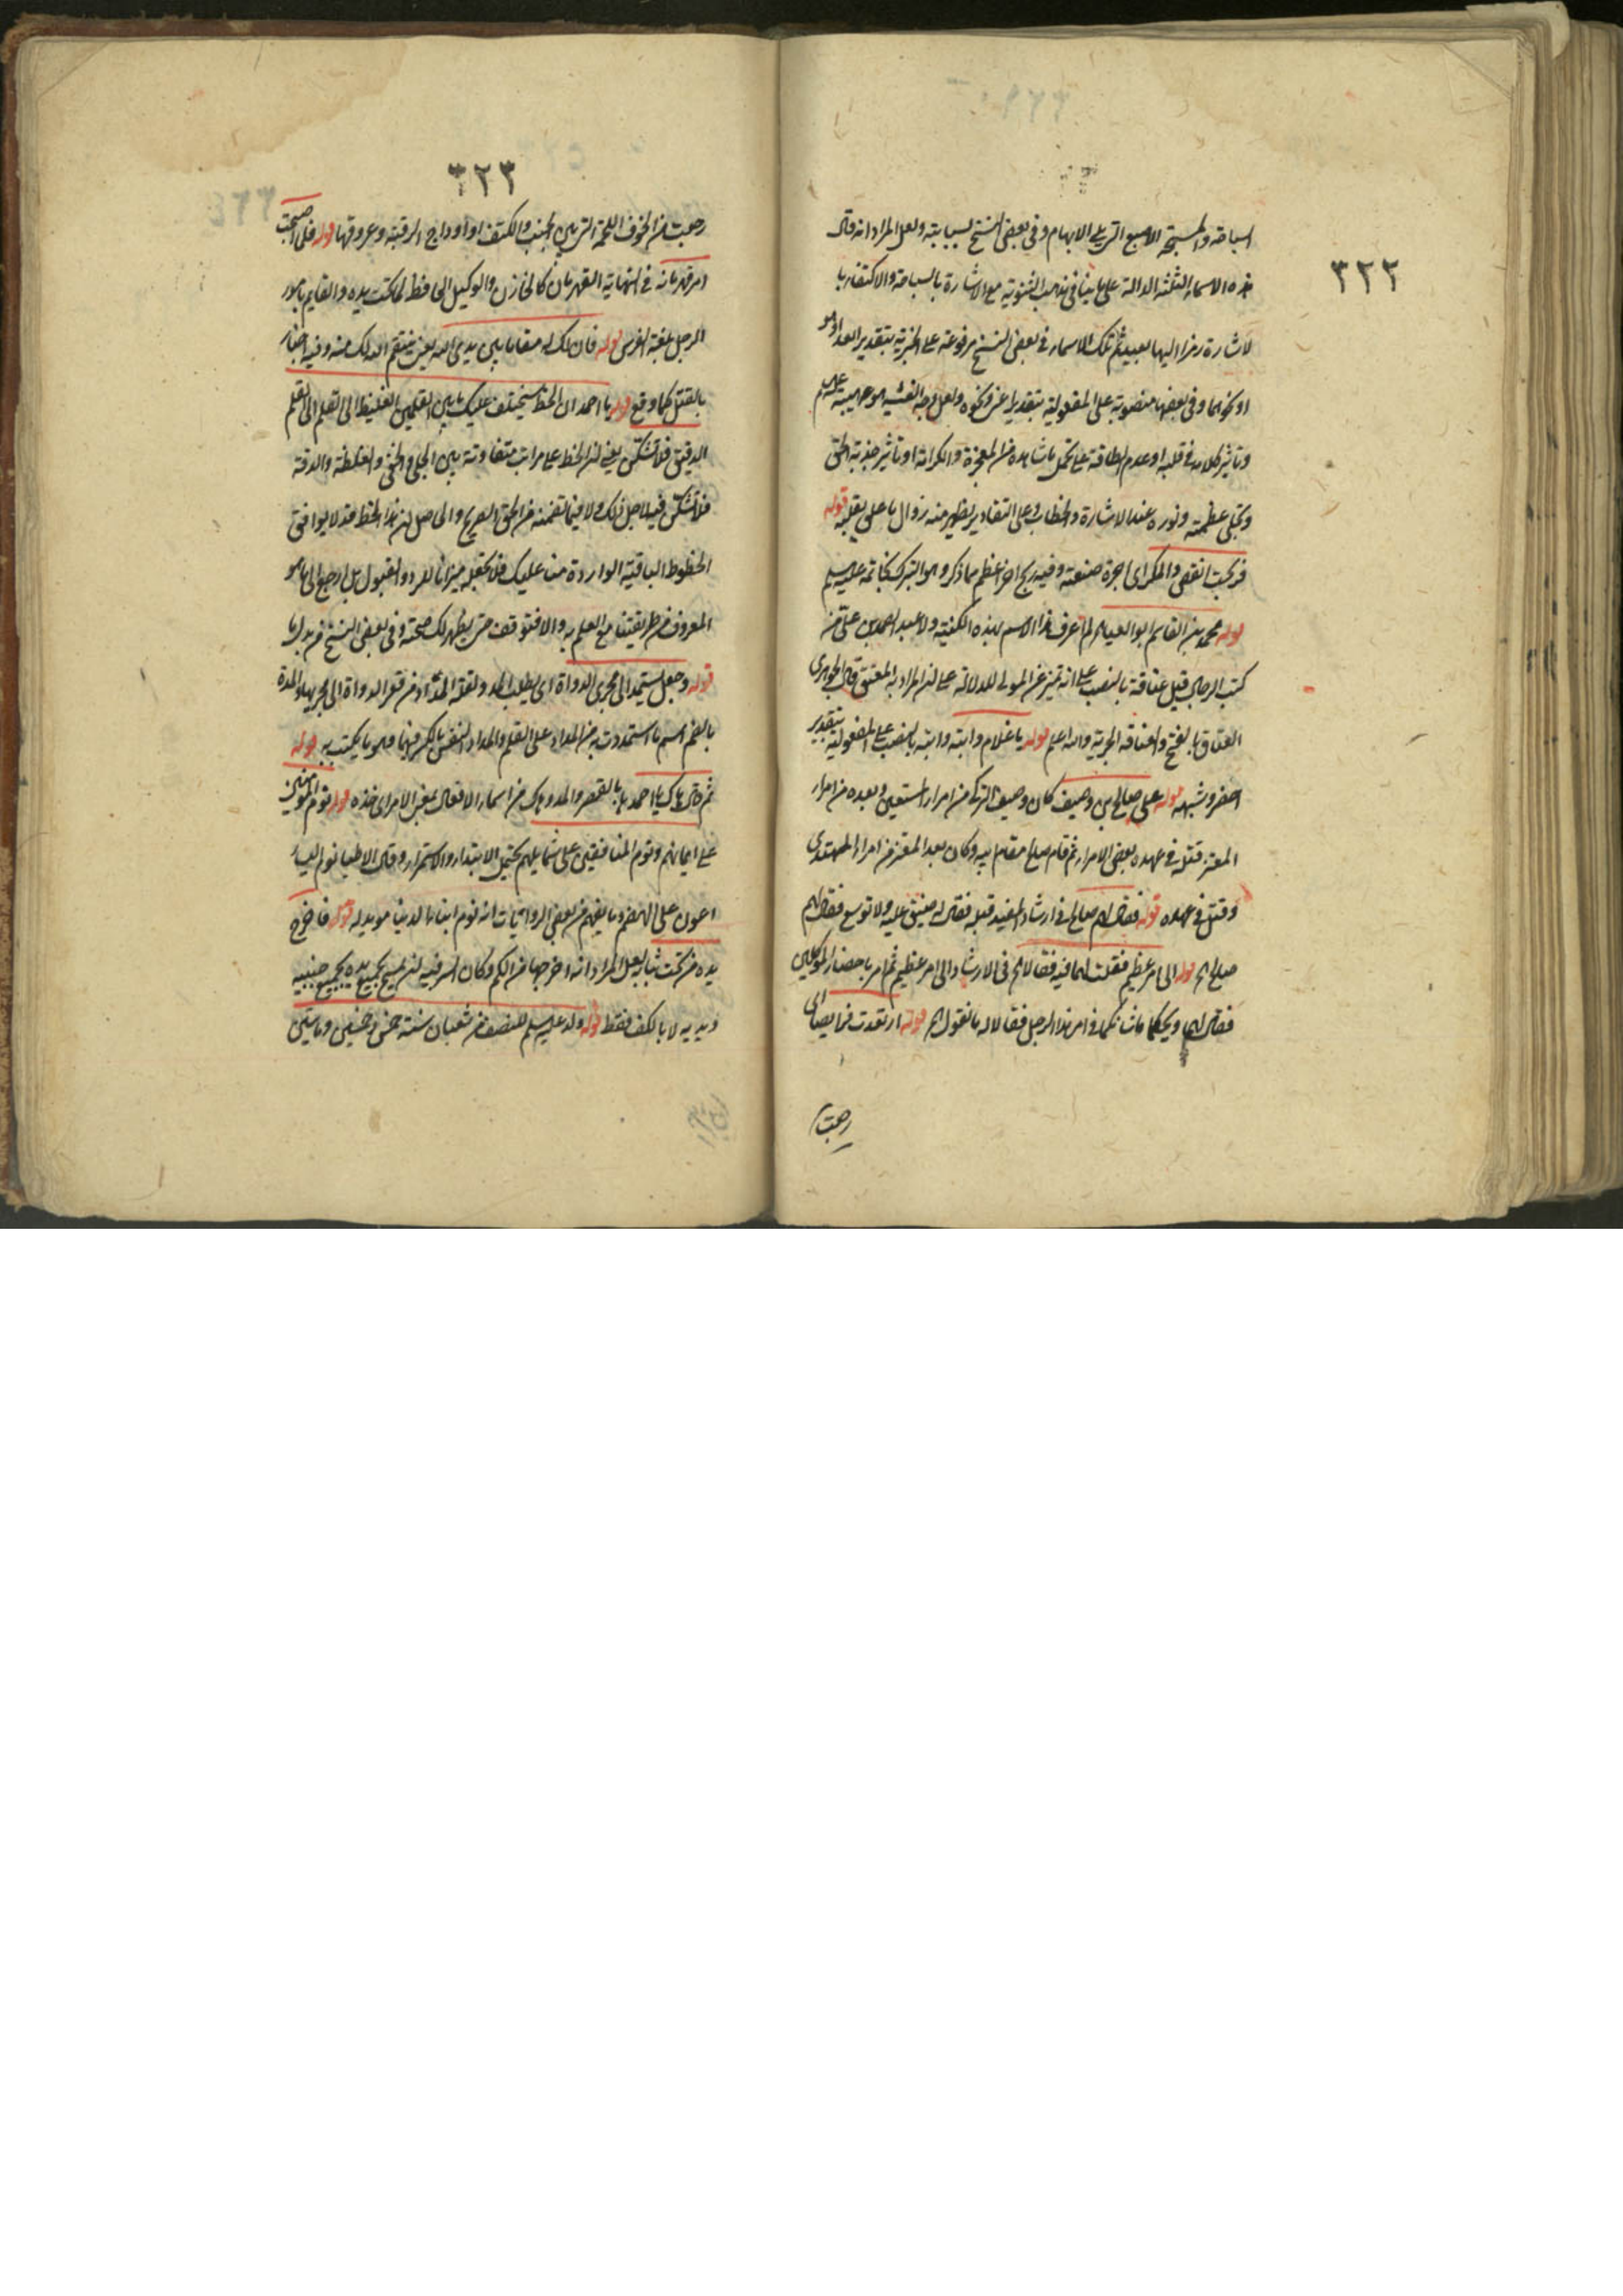 ٣٢٢
السباحة والمسبحة الاصبع التي يلى الابهام وفى بعض النسخ لسبابته ولعل المراد انه قال
هذه الاسماء الثلثة الدالة على ما ينافى مذهب الثنوية مع الاشارة بالسباحة والاكتفاء با
لاشارة رمزا اليها بعيد ثم تلك الاسماء فى بعض النسخ مرفوعة على الخبرية بتقدير الله او هو
او نحوهما وفى بعضها منصوبة على المفعولية بتقدير اعنى ونحوه ولعل وجه الغشيه هو هيبته عليه السلم
وتاثير كلامه فى قلبه او عدم الطاقة على تحمل ما شاهده من المعجزة والكرامة او تاثير جذبة الحق
وتجلى عظمته ونوره عند الاشارة والخطاب وعلى التقادير يظهر منه زوال ما على بقلبه قوله
فربحت انفقى والمكراى اجرة صنعته وفيه ربح اخر اعظم مما ذكر وهو التبرك بخاتمه عليه السلم
قوله محمد بن القاسم ابو العيناء لم اعرف هذا الاسم بهذه الكنية ولا عبد الصمد بن على من
كتب الرجال قيل عتاقة بالنصب على انه تميز عن المولى للدلالة على ان المراد به المعتق قال الجوهرى
العتاق بالفتح والعتاقه الحرية والله اعلم قوله يا غلام دابته دابته بالنصب على المفعولية بتقدير
احضر وشبهه قوله على صالح بن وصيف كان وصيف التركى من امراء المستعين وبعده من امراء
المعتز قتل فى عهده بعض الامراء ثم قام صالح مقام ابيه وكان بعد المعتز من امراء المهتدى
وقتل فى عهده قوله فقال لهم صالح فى ارشاد المفيد قبله فقال له ضيق عليه ولا توسع فقال لهم
صالح اه قوله الى امر عظيم فقلت لهما فيه فقالا اه فى الارشاد الى امر عظيم ثم امر باحضار الموكلين
فقال لهما ويحكما ما شانكما فى امر هذا الرجل فقالا له ما نقول اه قوله ارتعدت فرايصنا اى
رجفت
٣٢٣
رجفت من الخوف اللحمة التى بين الجنب والكتف او اوداج الرقبة وعروقها قوله فلما اصبحت
امر قهرمانه فى النهاية القهرمان كالخازن والوكيل الحافظ لما تحت يده والقايم بامور
الرجل بلغة الفرس قوله فان لك له مقاما بين يدى الله يعنى ينتقم الله لك منه وفيه اخبار
بالقتل كما وقع قوله يا احمد ان الخط سيختلف عليك ما بين القلمين الغليظ الى القلم الى القلم
الدقيق فلا تشكن يعنى ان الخط على مراتب متفاوتة بين الجلى والخفى والغلظة والدقة
فلا تشكن فيه لاجل ذلك ولا فيما تضمنه من الحق الصريح والحاصل ان هذا الخط قد لا يوافق
الخطوط الباقية الواردة منا عليك فلا تجعله ميزانا للرد والقبول بل ارجع الى ما هو
المعروف من طريقتنا مع العلم به والا فتوقف حتى يظهر لك صحته وفى بعض النسخ من بدل ما
قوله وجعل يستمد الى مجرى الدواة اى يطلب المد ولقلة المداد من قعر الدواة الى مجريها والمدة
بالضم اسم ما استمددت به من المداد على القلم والمداد النقس بالكسر فيهما وهو ما يكتب به قوله
ثم قال هاك يا احمد ها بالقصر والمد وهاك من اسماء الافعال بمعنى الامر اى خذه قوله نوم المؤمنين
على ايمانهم ونوم المنافقين على شمايلهم يحتمل الابتداء والاستمرار وقال الاطباء نوم اليسار
اعون على الهضم وما يفهم من بعض الروايات انه نوم ابناء الدنيا مويد له قوله فاخرج
يده من تحت ثيابه لعل المراد انه اخرجها من الكم وكان السر فيه ان يمسح بجميع يده بجميع جنبيه
ويديه لا بالكف فقط قوله ولد عليه السلم للنصف من شعبان سنة خمس وخمسين وماتين